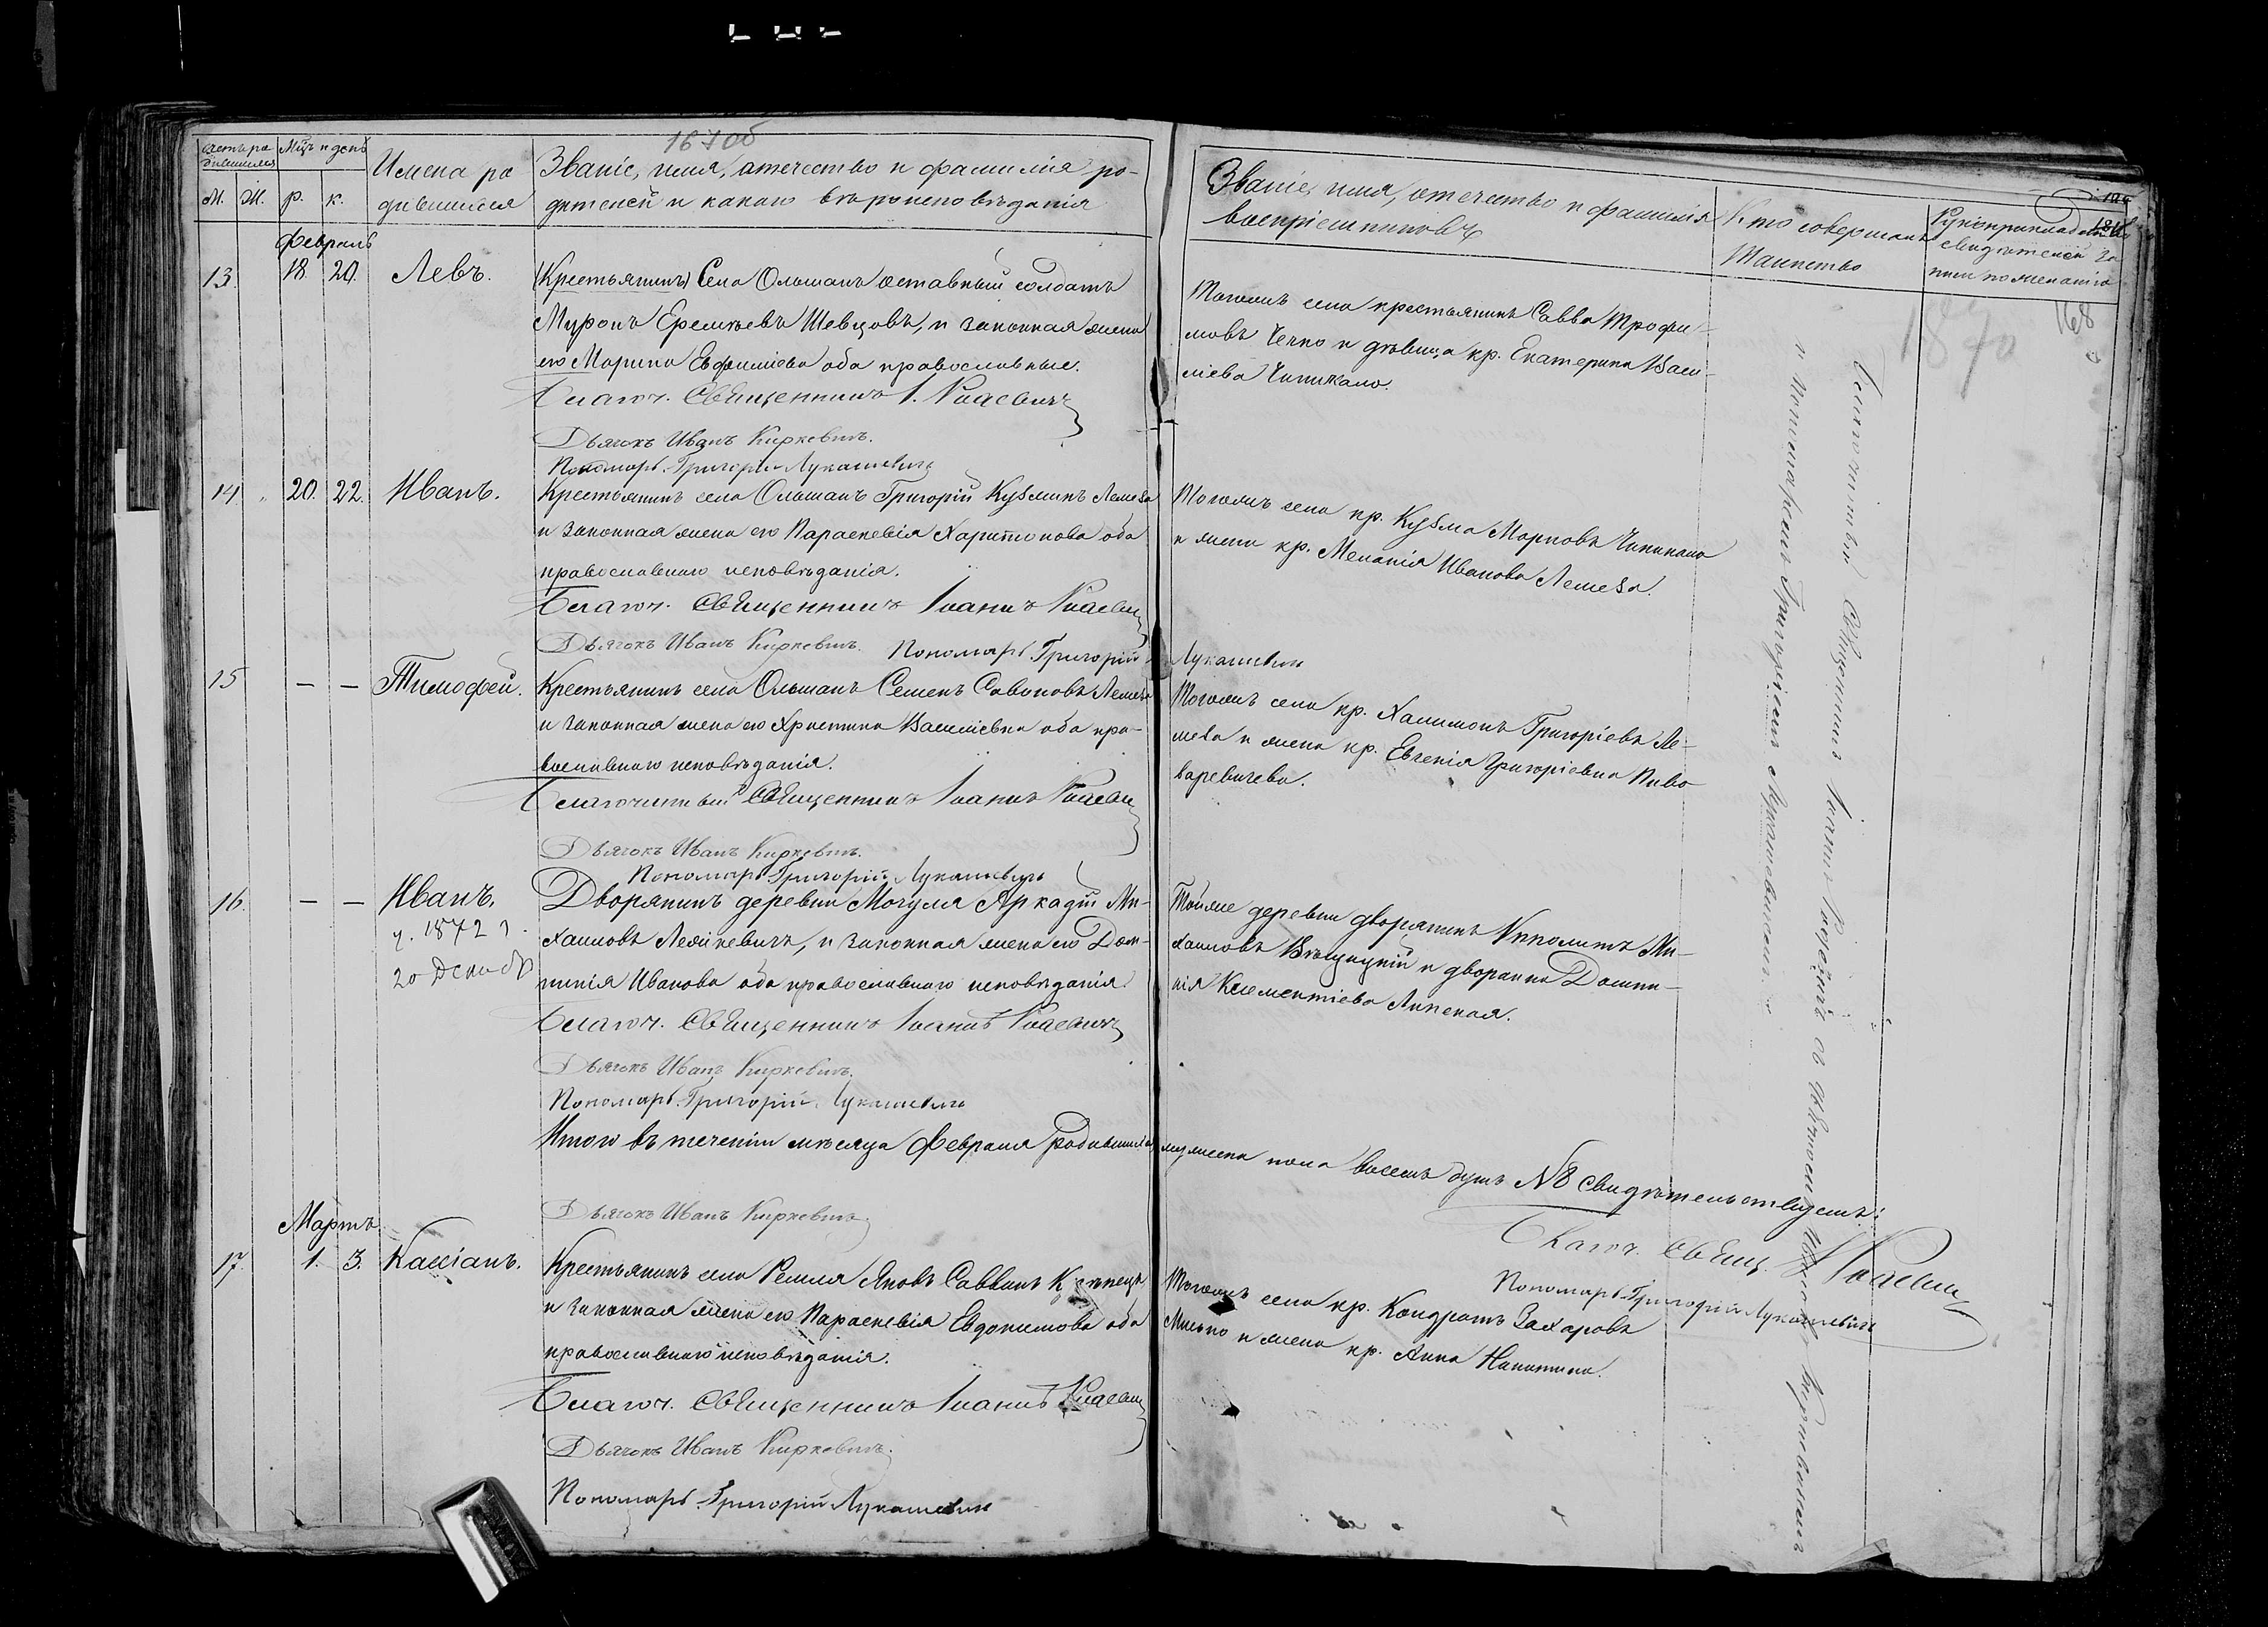 167об
Счетъ ро
дившихся
Мѣц. и день
М. Ж. р. к.
Имена ро
дившихся
Званіе, имя, отчество и фамилія ро-
дителей и какаго вѣроисповѣданія
Февраль
13. 18. 20. Левъ.
(Крестьянинъ) Села Ольшанъ отставный солдатъ
Миронъ Еремѣевъ Шевцовъ, и законная жена
его Марина Евфимiева оба православные.
Благоч. Священникъ І.
Дьячокъ Иванъ Киркевичъ.
Пономарь Григорій Лукашевичъ
14. 20. 22. Иванъ.
Крестьянинъ села Ольшанъ Григорій Кузминъ Лемеза
и законная жена его Параскевія Харитонова оба
православнаго исповѣданія.
Благоч. Священникъ Іоаннъ
Дьячокъ Иванъ Киркевичъ. Пономарь Григорій
15 — — Тимофей.
Крестьянинъ села Ольшанъ Семенъ Савоновъ Лемеза
и законная жена его Христина Васильевна оба пра-
вославнаго исповѣданія.
Благочинный Священникъ Іоаннъ
Дьячокъ Иванъ Киркевичъ.
Пономарь Григорій Лукашевичъ
16. — — Иванъ.
у. 1872 г.
20 Декабр
Дворянинъ деревни Могуля Аркадій Ми-
хаиловъ Лейкевичъ, и законная жена его Дом-
никія Иванова оба православнаго исповѣданія.
Благоч. Священникъ Іоаннъ
Дьячокъ Иванъ Киркевичъ.
Пономарь Григорій Лукашевичъ
Итого въ теченіи мѣсяца Февраля родившихся
Дьячокъ Иванъ Киркевичъ
Мартъ
17. 1. 3. Кассіанъ.
Крестьянинъ села Ремля Яковъ Саввинъ
и законная жена его Параскевія Евдокимова оба
православнаго исповѣданія.
Благоч. Священникъ Іоаннъ
Дьячокъ Иванъ Киркевичъ.
Пономарь Григорій Лукашевичъ
Званіе, имя, отчество и фамилія
воспріемниковъ
Кто совершалъ
Таинство
Рукоприкладство
свидѣтелей за
писи по желанію
168
1870
Тогожъ села крестьянинъ Савва Трофи-
мовъ Чечко и дѣвица кр. Екатерина Васи-
ліева Чипикало.
Тогожъ села кр. Кузма Марковъ Чипикало
и жена кр. Меланія Иванова Лемеза.
Лукашевичъ
Тогожъ села кр. Халимонъ Григоріевъ Ле-
меза и жена кр. Евгенія Григоріевна Пиво-
варевичева.
Тойже деревни дворянинъ Ипполитъ Ми-
хаиловъ и дворянка Домни-
кія Климентіева Липская.
мужеска пола восемь душъ №8 свидѣтельствуемъ:
Благоч. Свящ.
Пономарь Григорій Лукашевичъ
Тогожъ села кр. Кондратъ Захаровъ
и жена кр. Анна Никитина.
Благочинный Священникъ Іоаннъ съ Дьячкомъ Иваномъ Киркевичемъ
и Пономаремъ Григоріемъ Лукашевичемъ